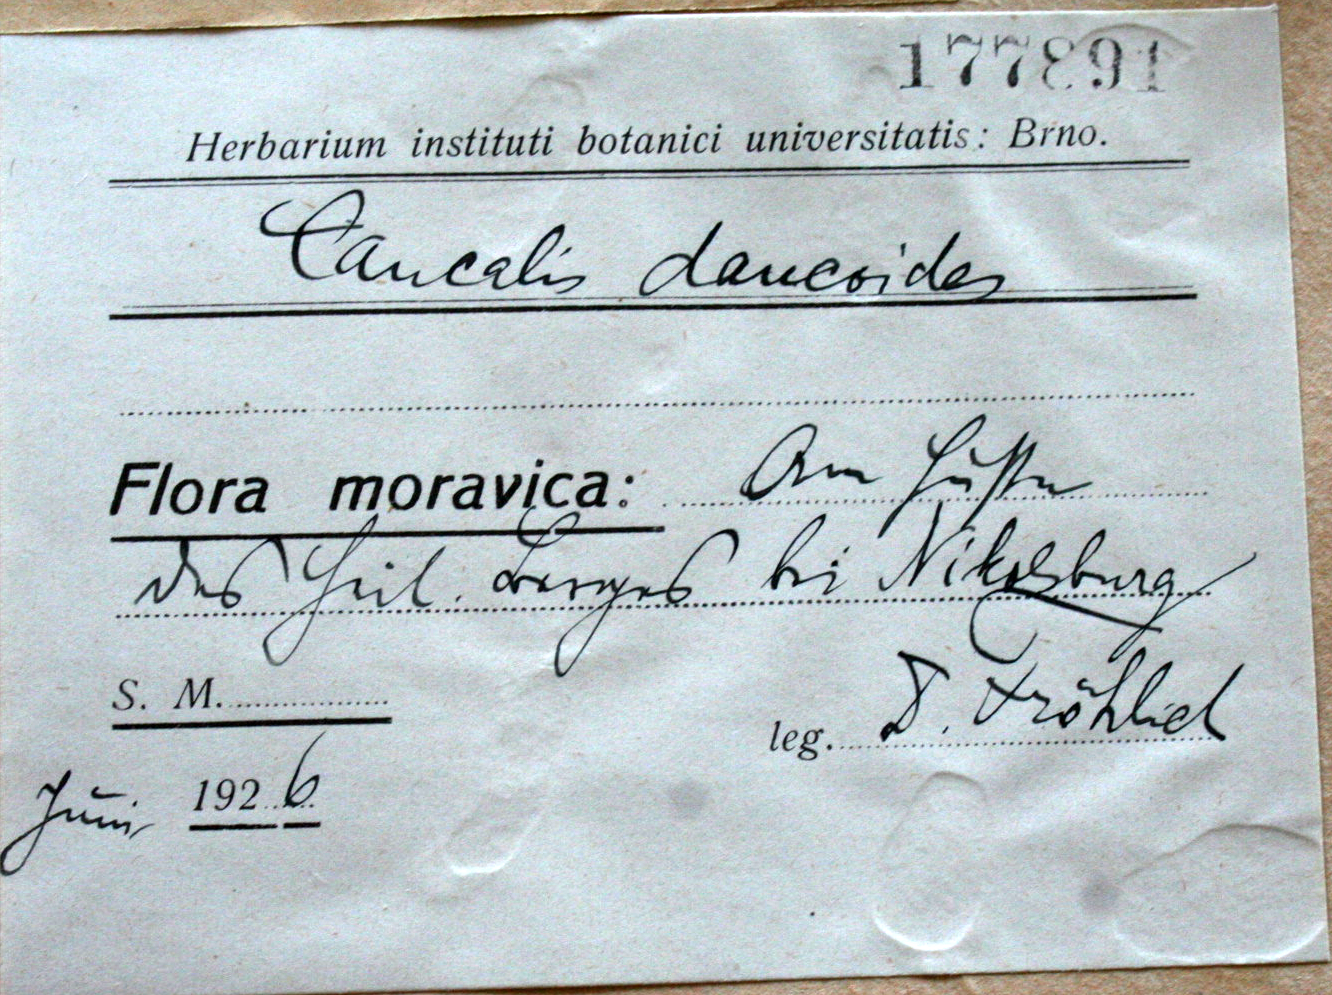 177891
Herbarium instituti botanici universitatis: Brno.
Caucalis daucoides
Flora moravica: Am Fuße
des heil. Berges bei Nikolsburg
S. M.
leg. D. Fröhlich
Juni 1926